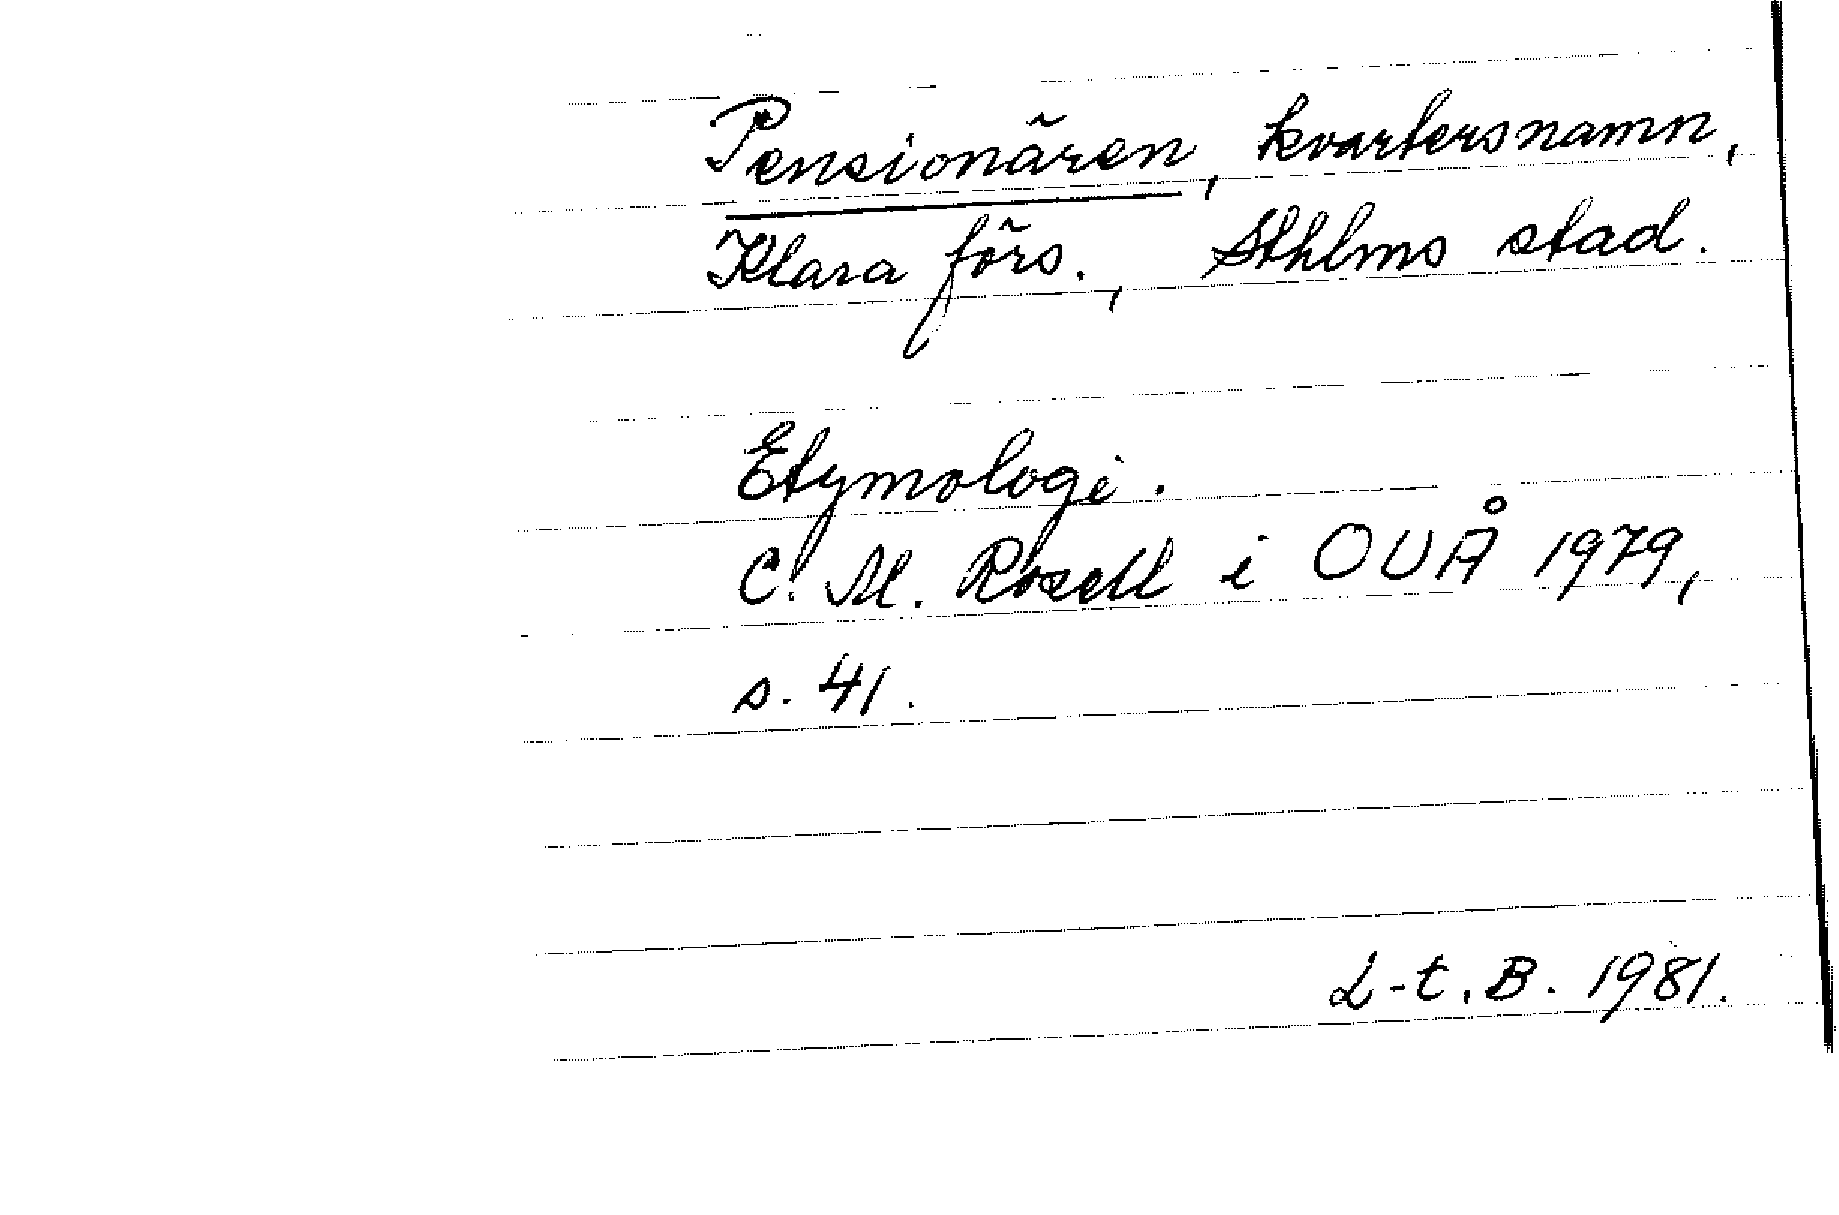 Pensionären, kvartersnamn,
Klara förs., Sthlms stad.
Etymologi.
C. M. Rosell i OUÅ 1979,
s. 41.
L-t. B. 1981.